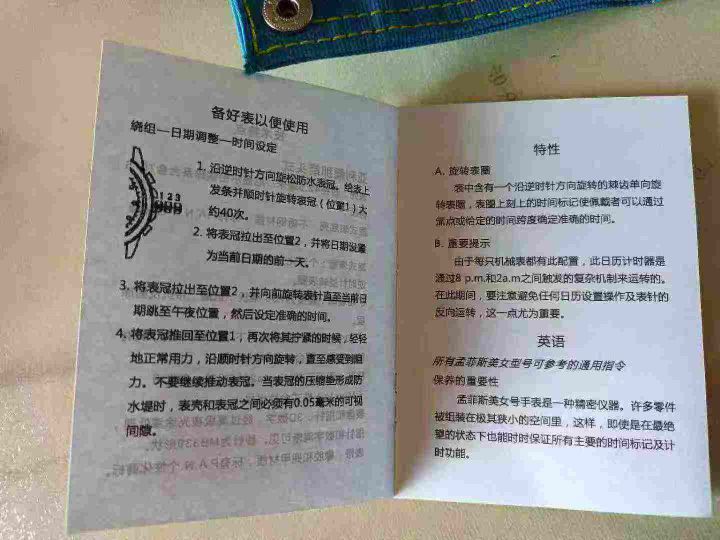 备好表以便使用
绕组—日期调整—时间设定
1 2 3
1. 沿逆时针方向旋松防水表冠。给表上
发条并顺时针旋转表冠（位置1）大
约40次。
2. 将表冠拉出至位置2，并将日期设置
为当前日期的前一天。
3. 将表冠拉出至位置2，并向前旋转表针直至当前日
期跳至午夜位置，然后设定准确的时间。
4. 将表冠推回至位置1，再次将其拧紧的时候，轻轻
地正常用力，沿顺时针方向旋转，直至感受到阻
力。不要继续推动表冠。当表冠的压缩垫形成防
水堤时，表壳和表冠之间必须有0.05毫米的可视
间隙。
特性
A. 旋转表圈
表中含有一个沿逆时针方向旋转的棘齿单向旋
转表圈，表圈上刻上的时间标记使佩戴者可以通过
焦点或给定的时间跨度确定准确的时间。
B. 重要提示
由于每只机械表都有此配置，此日历计时器是
通过8 p.m.和2a.m之间触发的复杂机制来运转的。
在此期间，要注意避免任何日历设置操作及表针的
反向运转，这一点尤为重要。
英语
所有孟菲斯美女型号可参考的通用指令
保养的重要性
孟菲斯美女号手表是一种精密仪器。许多零件
被组装在极其狭小的空间里，这样，即使是在最绝
望的状态下也能时时保证所有主要的时间标记及计
时功能。